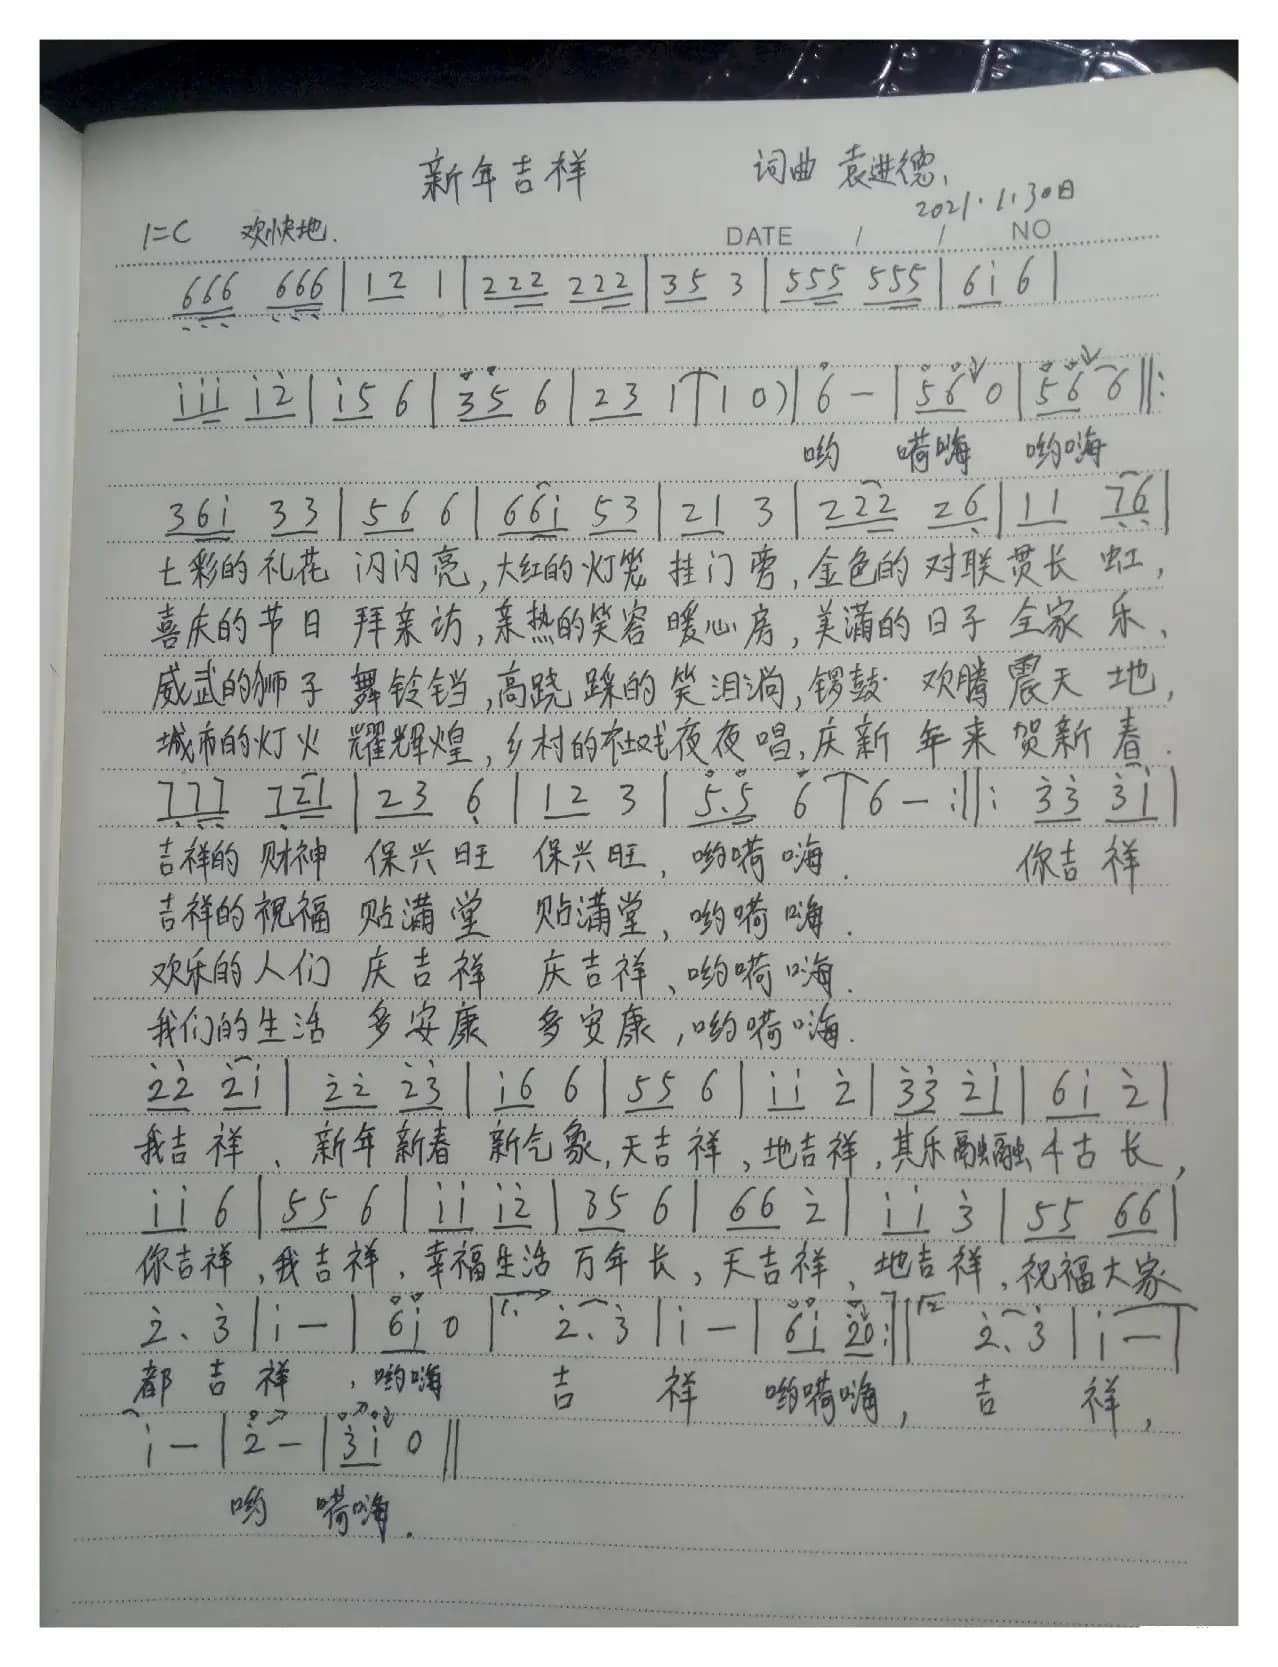 新年吉祥 词曲 袁进德
2021.1.30日
1=C 欢快地.
DATE / / NO
666 666 | 12 1 | 222 222 | 35 3 | 555 555 | 6i 6 |
iii i2 | i5 6 | 35 6 | 23 1 | 1 0) | 6 — | 56 0 | 56 6 ‖:
哟 嗬嗨 哟嗨
36i 33 | 56 6 | 66i 53 | 21 3 | 222 26 | 11 76 |
七彩的礼花 闪闪亮,大红的灯笼 挂门旁,金色的对联贯长 虹,
喜庆的节日 拜亲访,亲热的笑容 暖心房,美满的日子 全家 乐、
威武的狮子 舞铃铛,高跷踩的笑泪淌,锣鼓 欢腾震天 地,
城市的灯火 耀辉煌,乡村的夜夜唱,庆新 年来 贺新 春.
777 721 | 23 6 | 12 3 | 5.5 6 | 6 — :‖: 33 3i |
吉祥的 财神 保兴旺 保兴旺,哟嗬 嗨. 你吉 祥
吉祥的祝福 贴满堂 贴满堂,哟嗬 嗨.
欢乐的人们 庆吉祥 庆吉祥、哟嗬 嗨.
我们的生活 多安康 多安康,哟嗬 嗨.
22 2i | 22 23 | i6 6 | 55 6 | ii 2 | 33 2i | 6i 2 |
我吉 祥、新年新春 新气象,天吉祥,地吉祥,其乐融融千古 长,
ii 6 | 55 6 | ii i2 | 35 6 | 66 2 | ii 3 | 55 66 |
你吉祥,我吉祥,幸福生活 万年长,天吉祥、地吉祥,祝福大家
2、3 | i — | 6i 0 | 1. 2、3 | i — | 6i 20 :‖ 2 2、3 | i — |
都 吉 祥,哟嗨 吉 祥 哟嗬嗨,吉 祥,
i — | 2 — | 3i 0 ‖
哟 嗬嗨.